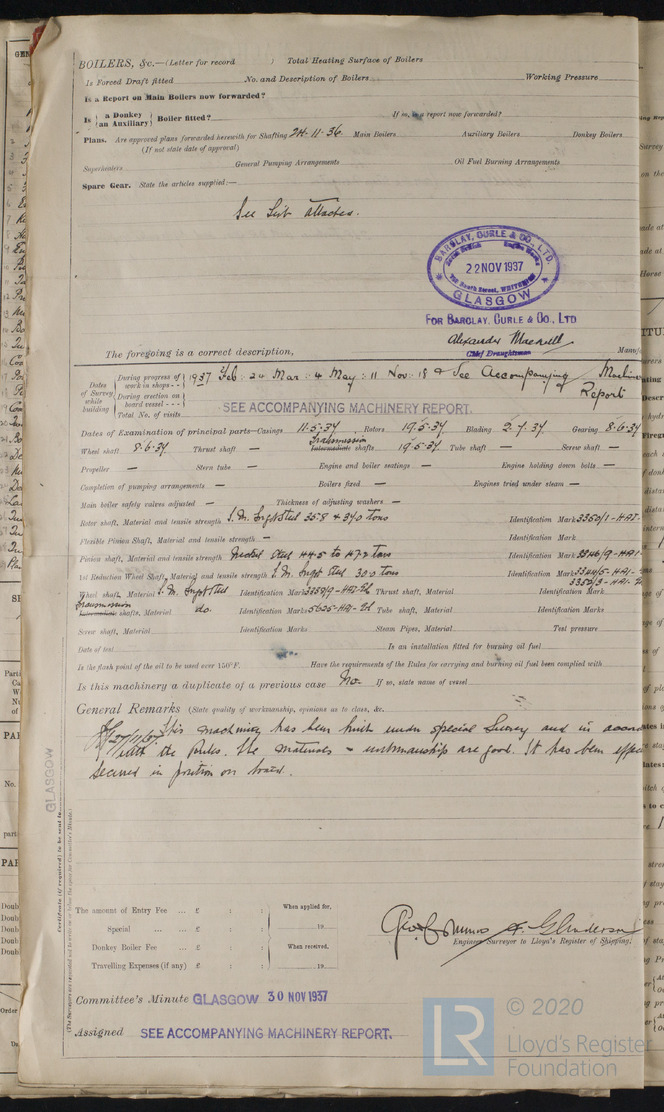 BOILERS, &c.—(Letter for record ) Total Heating Surface of Boilers
Is Forced Draft fitted No. and Description of Boilers Working Pressure
Is a Report on Main Boilers now forwarded?
Is { a Donkey / an Auxiliary } Boiler fitted? If so, is a report now forwarded?
Plans. Are approved plans forwarded herewith for Shafting 24·11·36 Main Boilers Auxiliary Boilers Donkey Boilers
(If not state date of approval)
Superheaters General Pumping Arrangements Oil Fuel Burning Arrangements
Spare Gear. State the articles supplied:—
See List attached.
BARCLAY, CURLE & CO., LTD.
22 NOV 1937
South Street, WHITEINCH
GLASGOW
FOR BARCLAY, CURLE & CO., LTD
Alexander Maxwell
Chief Draughtsman
The foregoing is a correct description, Manuf
Dates of Survey while building
During progress of work in shops - - 1937 Feb: 24 Mar: 4 May: 11 Nov: 18 & See Accompanying Machinery
During erection on board vessel - - - Report
Total No. of visits SEE ACCOMPANYING MACHINERY REPORT.
Dates of Examination of principal parts—Casings 11·5·37 Rotors 19·5·37 Blading 2·7·37 Gearing 8·6·37
Wheel shaft 8·6·37 Thrust shaft — Transmission shafts 19·5·37 Tube shaft — Screw shaft —
Propeller — Stern tube — Engine and boiler seatings — Engine holding down bolts —
Completion of pumping arrangements — Boilers fixed — Engines tried under steam —
Main boiler safety valves adjusted — Thickness of adjusting washers —
Rotor shaft, Material and tensile strength S.M. Ingot Steel 35·8 & 37·0 tons Identification Mark 3350/1-HAI-
Flexible Pinion Shaft, Material and tensile strength — Identification Mark
Pinion shaft, Material and tensile strength Nickel Steel 44·5 to 47·3 tons Identification Mark 3346/9-HAI-
1st Reduction Wheel Shaft, Material and tensile strength S.M. Ingot Steel 30·0 tons Identification Mark 3344/5-HAI-
Wheel shaft, Material S.M. Ingot Steel Identification Mark Thrust shaft, Material Identification Mark
Transmission shafts, Material do. Identification Marks Tube shaft, Material Identification Marks
Screw shaft, Material Identification Marks Steam Pipes, Material Test pressure
Date of test Is an installation fitted for burning oil fuel
Is the flash point of the oil to be used over 150°F. Have the requirements of the Rules for carrying and burning oil fuel been complied with
Is this machinery a duplicate of a previous case No. If so, state name of vessel
General Remarks (State quality of workmanship, opinions as to class, &c.
This machinery has been built under special Survey and in accord
with the Rules. The materials & workmanship are good. It has been
secured in position on board.
GLASGOW
Certificate (if required) to be sent to
The amount of Entry Fee ... £ : : When applied for,
Special ... ... £ : : 19
Donkey Boiler Fee ... £ : : When received,
Travelling Expenses (if any) £ : : 19
Engineer Surveyor to Lloyd's Register of Shipping.
Committee's Minute GLASGOW 30 NOV 1937
Assigned SEE ACCOMPANYING MACHINERY REPORT.
LR
© 2020
Lloyd's Register
Foundation